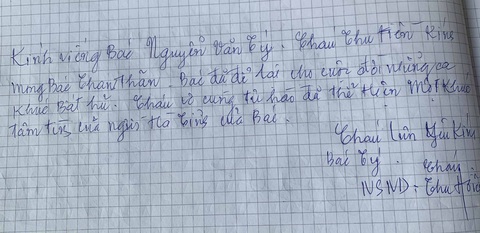 Kính viếng Bác Nguyễn Văn Tý. Cháu Thu Hiền Kính
mong Bác Thanh Thản. Bác đã để lại cho cuộc đời những ca
Khúc Bất hủ. Cháu vô cùng tự hào đã thể hiện Một Khúc
tâm tình của người Hà Tĩnh của Bác.
Cháu luôn yêu Kính
Bác Tý. Cháu
NSND: Thu Hiền